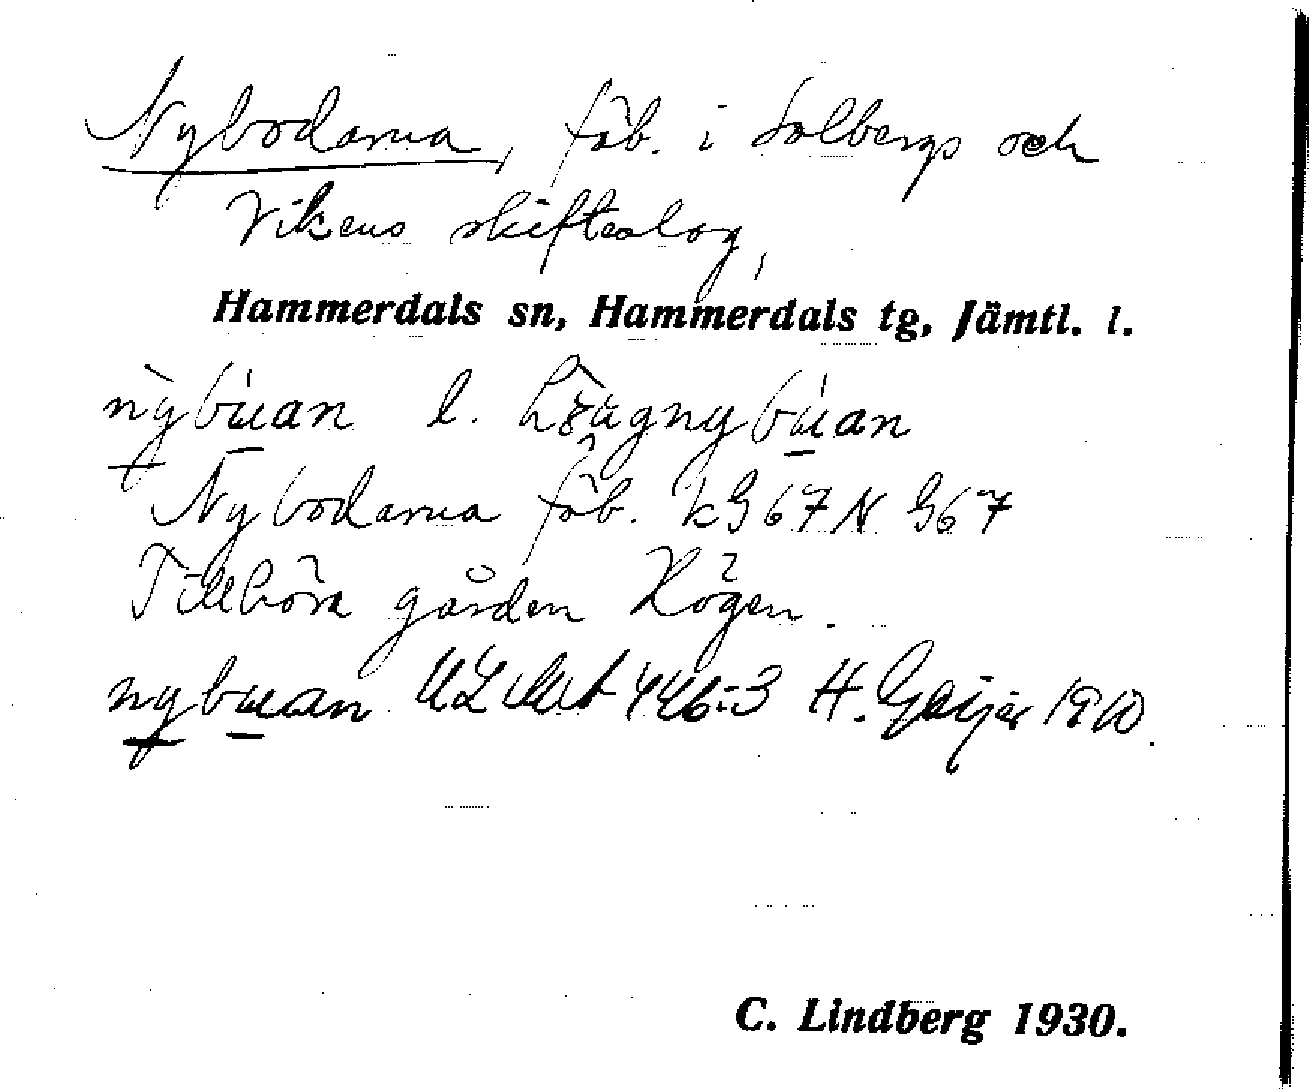 Nybodarna, fäb. i Solbergs och
Vikens skifteslag,
Hammerdals sn, Hammerdals tg, Jämtl. l.
nybuan l.
Nybodarna fäb. kG 67 N G67
Tillhöra gården Högen.
nybuan 446:3 H. Geijer 1910.
C. Lindberg 1930.